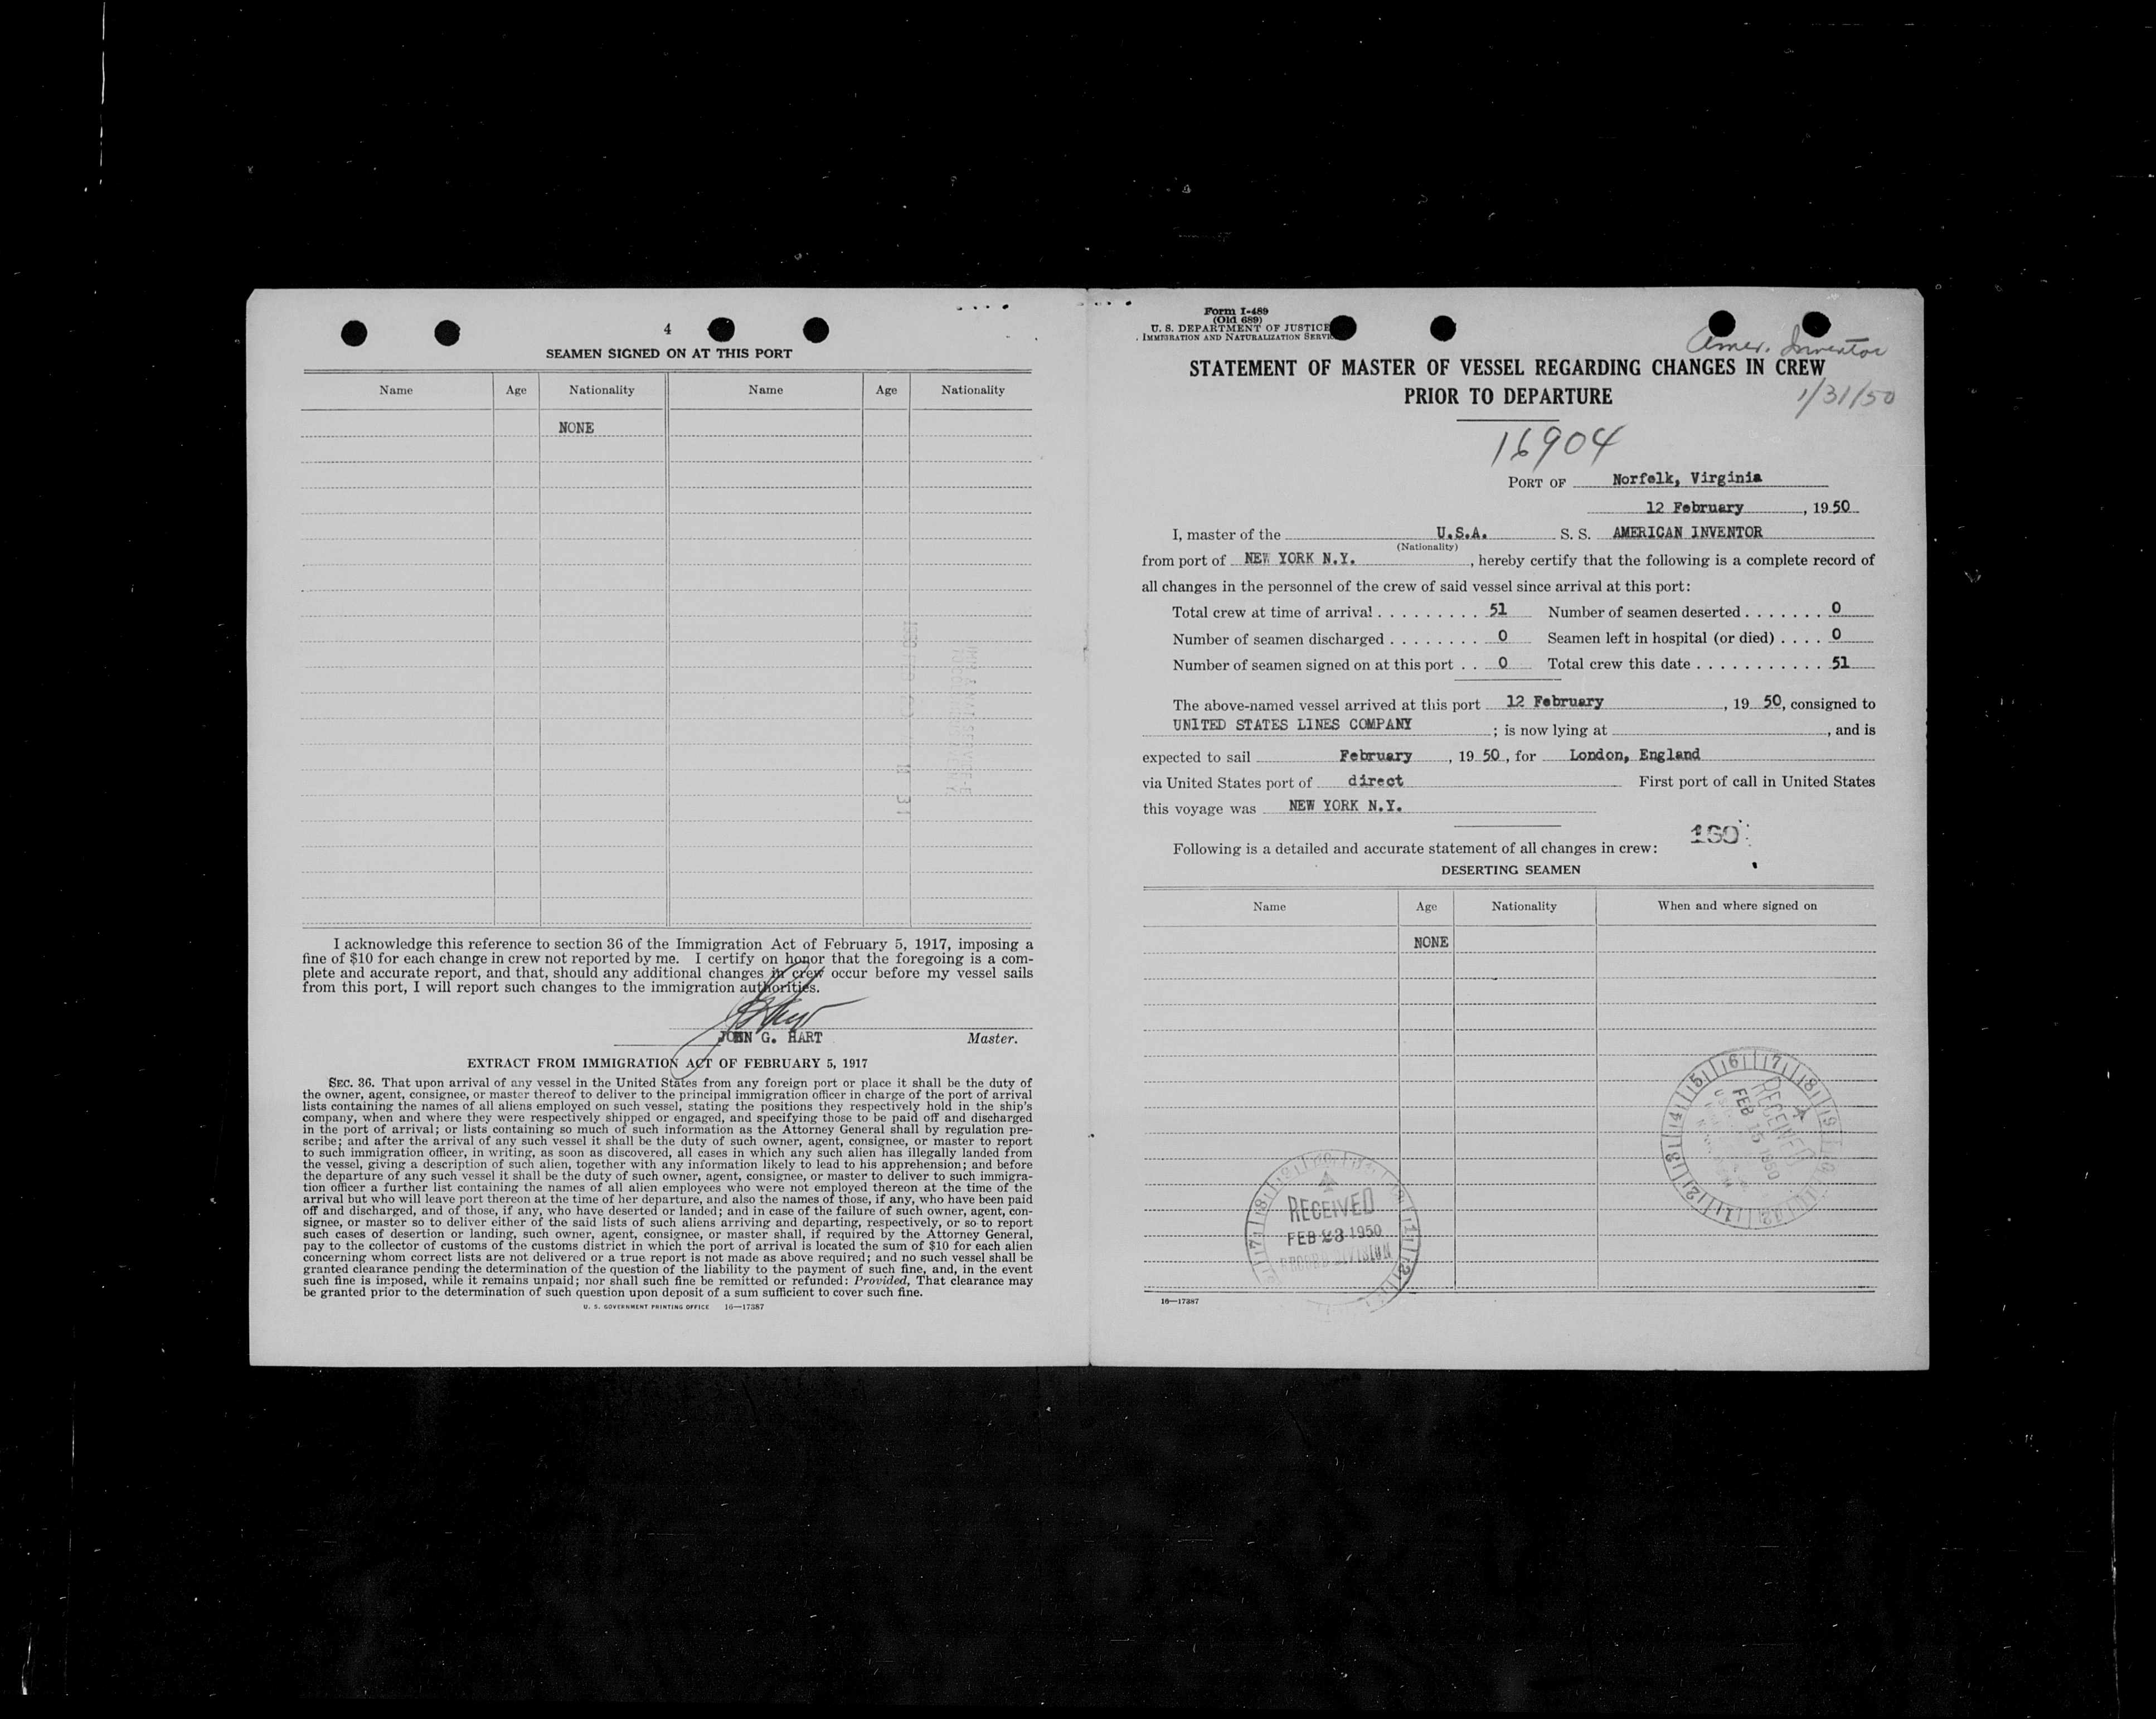 4
SEAMEN SIGNED ON AT THIS PORT
Name Age Nationality Name Age Nationality
NONE
I acknowledge this reference to section 36 of the Immigration Act of February 5, 1917, imposing a
fine of $10 for each change in crew not reported by me. I certify on honor that the foregoing is a com-
plete and accurate report, and that, should any additional changes in crew occur before my vessel sails
from this port, I will report such changes to the immigration authorities.
JOHN G. HART Master.
EXTRACT FROM IMMIGRATION ACT OF FEBRUARY 5, 1917
SEC. 36. That upon arrival of any vessel in the United States from any foreign port or place it shall be the duty of
the owner, agent, consignee, or master thereof to deliver to the principal immigration officer in charge of the port of arrival
lists containing the names of all aliens employed on such vessel, stating the positions they respectively hold in the ship's
company, when and where they were respectively shipped or engaged, and specifying those to be paid off and discharged
in the port of arrival; or lists containing so much of such information as the Attorney General shall by regulation pre-
scribe; and after the arrival of any such vessel it shall be the duty of such owner, agent, consignee, or master to report
to such immigration officer, in writing, as soon as discovered, all cases in which any such alien has illegally landed from
the vessel, giving a description of such alien, together with any information likely to lead to his apprehension; and before
the departure of any such vessel it shall be the duty of such owner, agent, consignee, or master to deliver to such immigra-
tion officer a further list containing the names of all alien employees who were not employed thereon at the time of the
arrival but who will leave port thereon at the time of her departure, and also the names of those, if any, who have been paid
off and discharged, and of those, if any, who have deserted or landed; and in case of the failure of such owner, agent, con-
signee, or master so to deliver either of the said lists of such aliens arriving and departing, respectively, or so to report
such cases of desertion or landing, such owner, agent, consignee, or master shall, if required by the Attorney General,
pay to the collector of customs of the customs district in which the port of arrival is located the sum of $10 for each alien
concerning whom correct lists are not delivered or a true report is not made as above required; and no such vessel shall be
granted clearance pending the determination of the question of the liability to the payment of such fine, and, in the event
such fine is imposed, while it remains unpaid; nor shall such fine be remitted or refunded: Provided, That clearance may
be granted prior to the determination of such question upon deposit of a sum sufficient to cover such fine.
U. S. GOVERNMENT PRINTING OFFICE 16—17387
Form I-489
(Old 689)
U. S. DEPARTMENT OF JUSTICE
IMMIGRATION AND NATURALIZATION SERVIC
Amer. Inventor
STATEMENT OF MASTER OF VESSEL REGARDING CHANGES IN CREW
PRIOR TO DEPARTURE
1/31/50
16904
PORT OF Norfolk, Virginia
12 February, 1950
I, master of the U.S.A. S. S. AMERICAN INVENTOR
(Nationality)
from port of NEW YORK N.Y., hereby certify that the following is a complete record of
all changes in the personnel of the crew of said vessel since arrival at this port:
Total crew at time of arrival . . . . . . . . . 51 Number of seamen deserted . . . . . . . 0
Number of seamen discharged . . . . . . . . 0 Seamen left in hospital (or died) . . . . 0
Number of seamen signed on at this port . . 0 Total crew this date . . . . . . . . . . . 51
The above-named vessel arrived at this port 12 February, 19 50, consigned to
UNITED STATES LINES COMPANY ; is now lying at , and is
expected to sail February, 19 50, for London, England
via United States port of direct First port of call in United States
this voyage was NEW YORK N.Y.
Following is a detailed and accurate statement of all changes in crew:
DESERTING SEAMEN
Name Age Nationality When and where signed on
NONE
RECEIVED
FEB 15 1950
RECEIVED
FEB 23 1950
RECORD DIVISION
16—17387